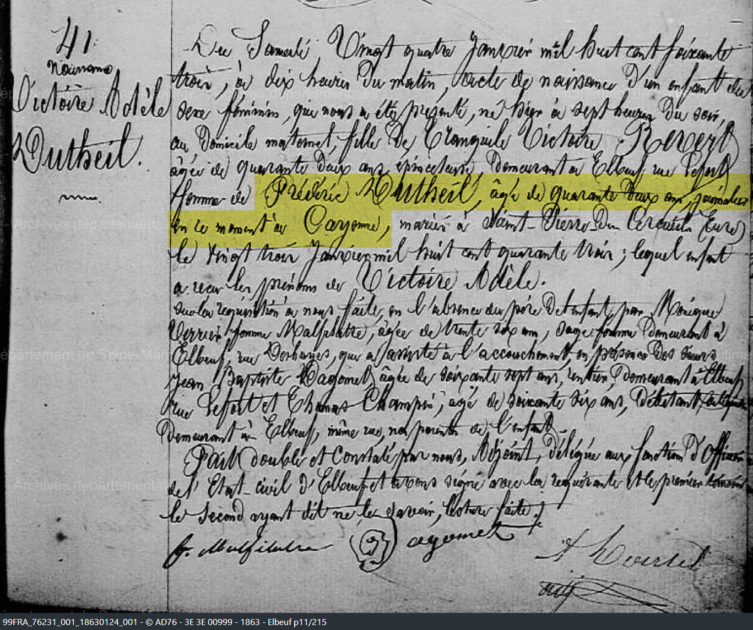 41
Naissance
Victoire Adèle
Dutheil.
Du Samedi Vingt quatre Janvier mil huit cent soixante
trois, à dix heures du matin, acte de naissance d'un enfant du
sexe féminin, que nous a été présenté, né hier à sept heures du soir,
au Domicile maternel, fille De Tranquile Victoire Revert
âgée de quarante deux ans, épinceteuse, Demeurant à Elbeuf, rue Lefort
femme de Frédéric Dutheil, âgé de quarante deux ans, journalier
en ce moment à Cayenne, mariés à Saint-Pierre-Du Cercueil (Eure)
le vingt trois Janvier mil huit cent quarante trois; lequel enfant
a reçu les prénoms de Victoire Adèle.
Sur la réquisition à nous faite, en l'absence du père de l'enfant, par Monique
Verrier femme Malfilatre, âgée de trente six ans, Sage femme Demeurant à
Elbeuf, rue, qui a assisté à l'accouchement, en présence des sieurs
Jean Baptiste Dagomet, âgé de soixante sept ans, rentier, demeurant à Elbeuf,
rue Lefort et Thomas Champin, âgé de soixante six ans, Débitant
Demeurant à Elbeuf, même rue, non parents de l'enfant.
Fait double et Constaté par nous, Adjoint, Délégué aux fonctions d'Officier
de l'Etat-civil d'Elbeuf et avons signé avec la requérante et le premier témoin
le Second ayant dit ne le savoir, lecture faite.
f. Malfilatre Dagomet
Archives départementales
département de Seine-Mar
99FRA_76231_001_18630124_001 - © AD76 - 3E 3E 00999 - 1863 - Elbeuf p11/215